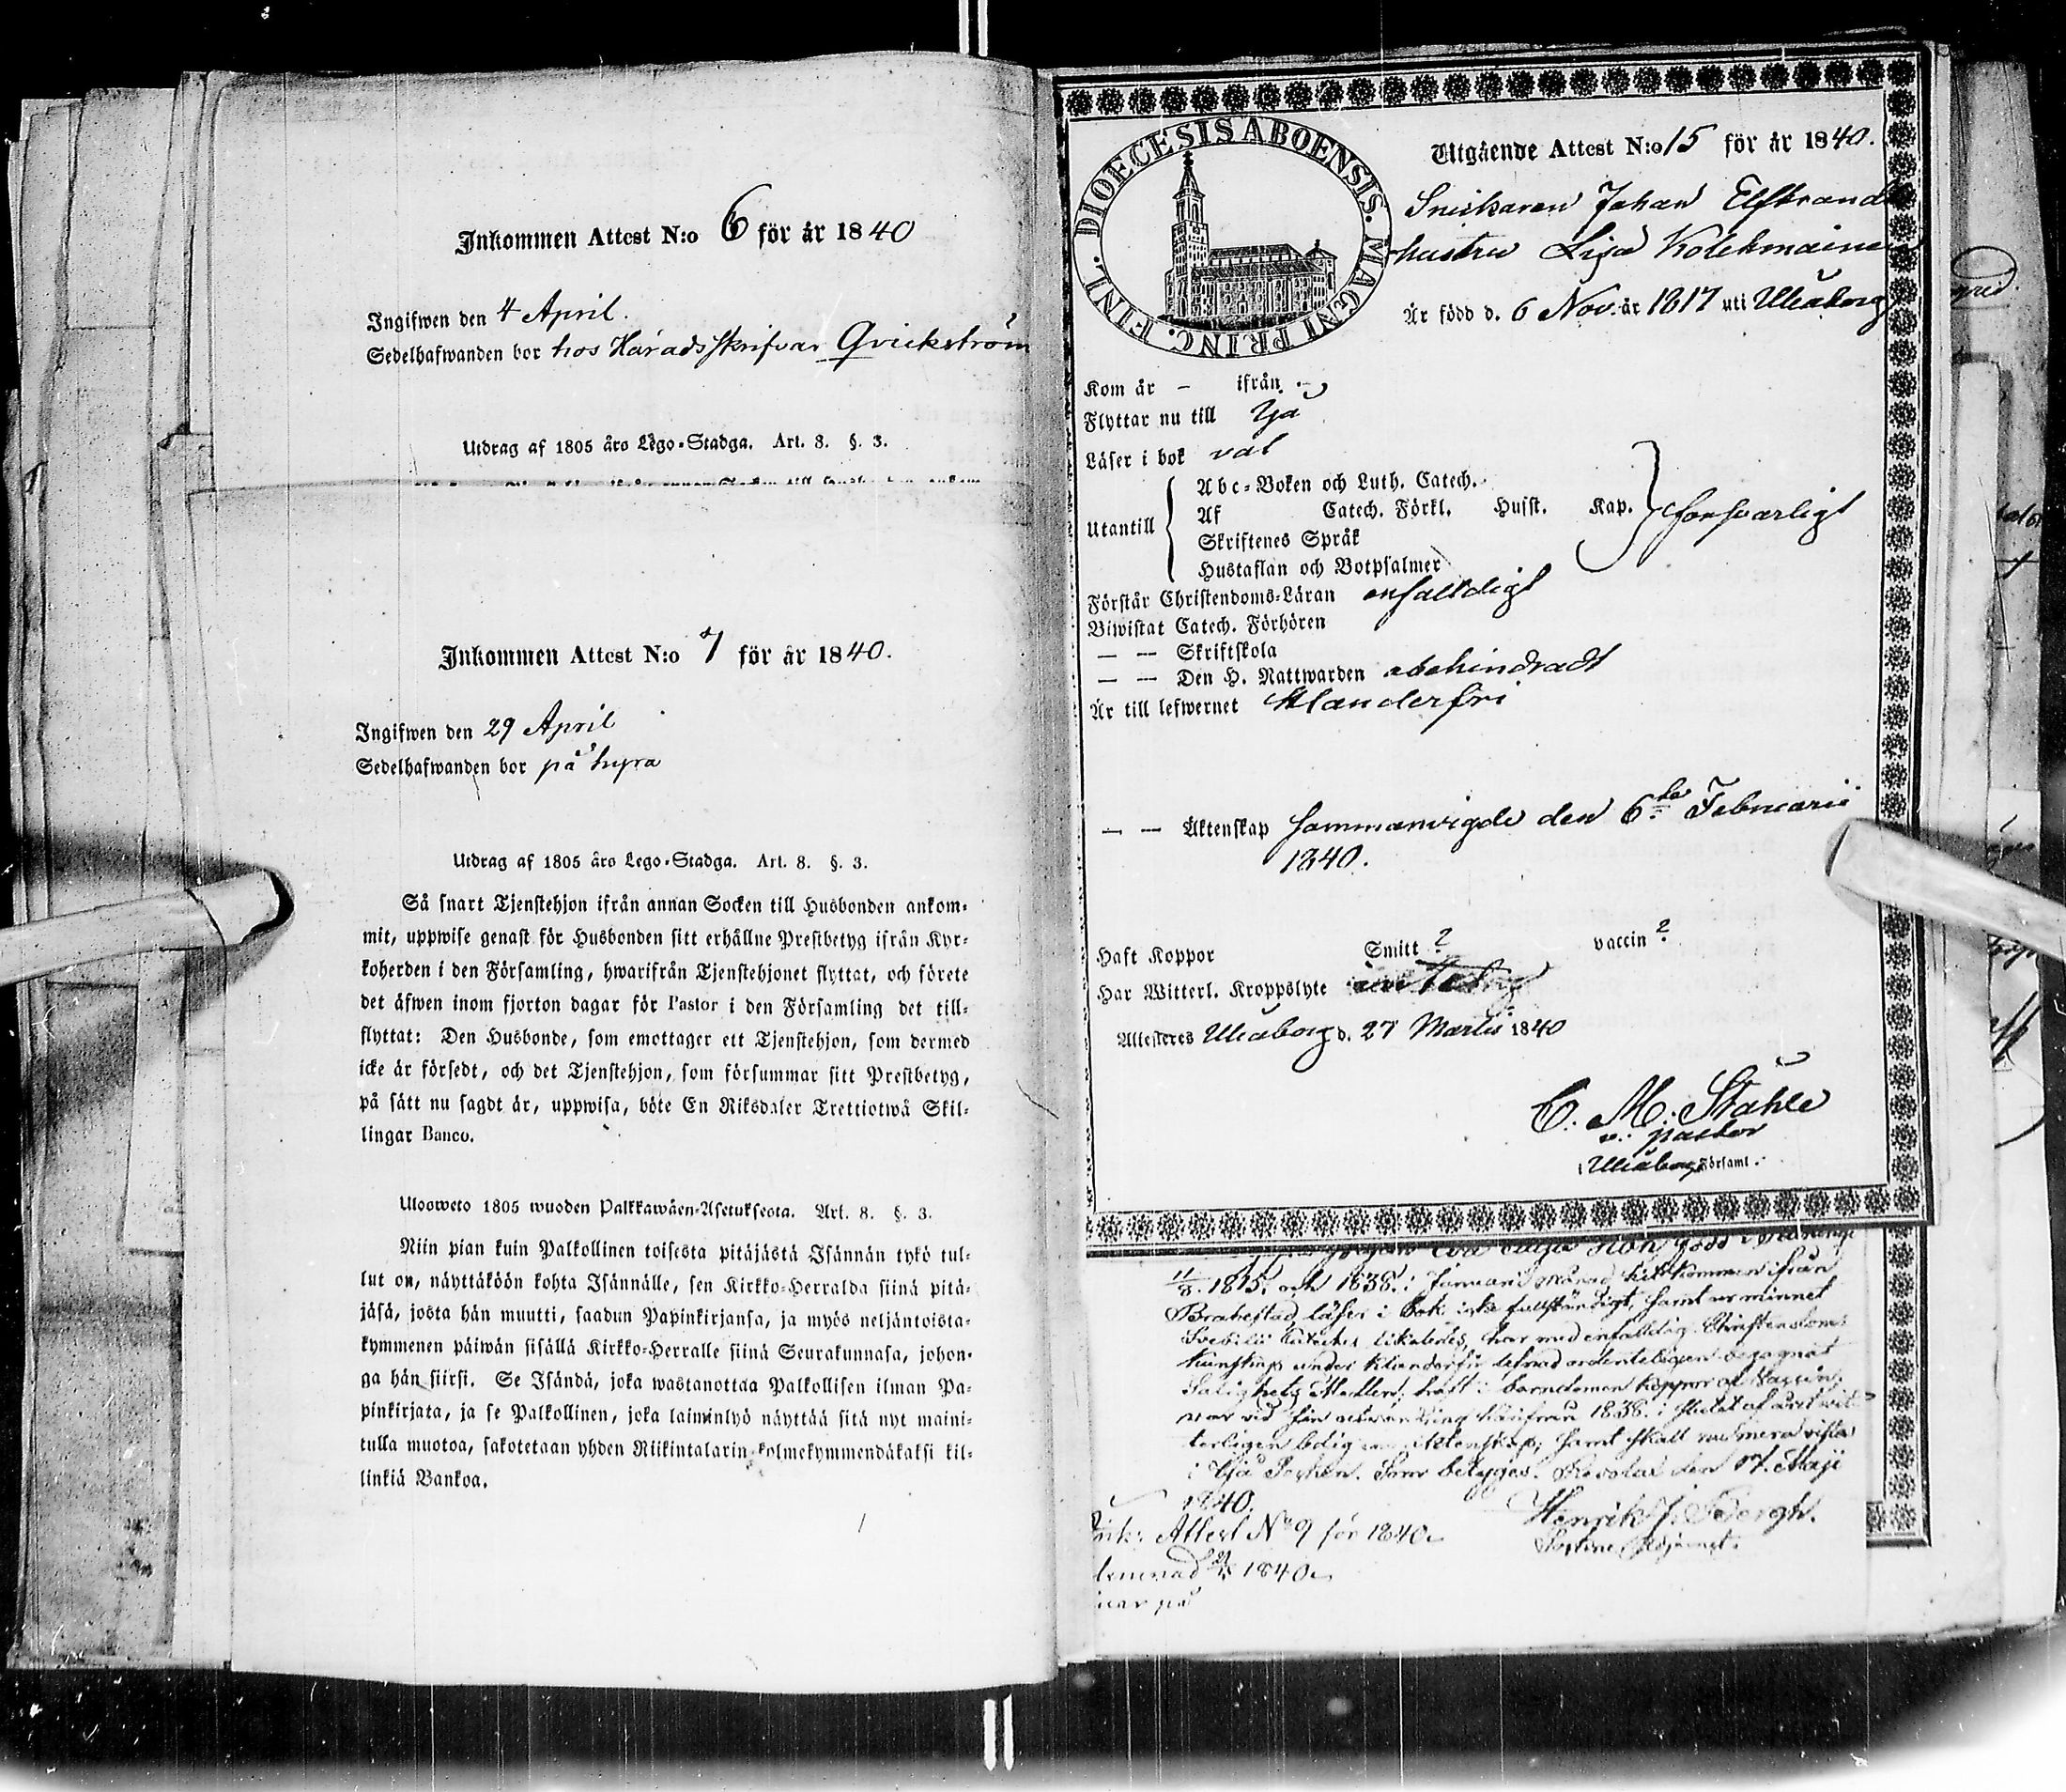 Inkommen Attest N:o 6 för år 1840
Ingifwen den 4 April.
Sedelhafwanden bor hos Häradsskrifvar Qvickström
Utdrag af 1805 års Lego-Stadga. Art. 8. §. 3.
Inkommen Attest N:o 7 för år 1840.
Ingifwen den 29 April
Sedelhafwanden bor på hyra
Utdrag af 1805 års Lego-Stadga. Art. 8. §. 3.
Så snart Tjenstehjon ifrån annan Socken till Husbonden ankom-
mit, uppwise genast för Husbonden sitt erhållne Prestbetyg ifrån Kyr-
koherden i den Församling, hwarifrån Tjenstehjonet flyttat, och förete
det äfwen inom fjorton dagar för Pastor i den Församling det till-
flyttat: Den Husbonde, som emottager ett Tjenstehjon, som dermed
icke är försedt, och det Tjenstehjon, som försummar sitt Prestbetyg,
på sätt nu sagdt är, uppwisa, böte En Riksdaler Trettiotwå Skil-
lingar Banco.
Ulosweto 1805 wuoden Palkkawäen-Asetuksesta. Art. 8. §. 3.
Niin pian kuin Palkollinen toisesta pitäjästä Isännän tykö tul-
lut on, näyttäköön kohta Isännälle, sen Kirkko-Herralda siinä pitä-
jäsä, josta hän muutti, saadun Papinkirjansa, ja myös neljäntoista-
kymmenen päiwän sisällä Kirkko-Herralle siinä Seurakunnasa, johon-
ga hän siirsi. Se Isändä, joka wastanottaa Palkollisen ilman Pa-
pinkirjata, ja se Palkollinen, joka laiminlyö näyttää sitä nyt maini-
tulla muotoa, sakotetaan yhden Riikintalarin kolmekymmendäkaksi kil-
linkiä Bankoa.
DIOECESIS ABOENSIS. MAGNI PRINC. FINL.
Utgående Attest N:o 15 för år 1840.
Snickaren Johan Elfbrands
hustru Lisa Kolehmainen
Är född d. 6 Nov. år 1817 uti Uleåborg
Kom år - ifrån -
Flyttar nu till Ijå
Läser i bok väl
Utantill
Abc-Boken och Luth. Catech.
Af Catech. Förkl. Husst. Kap.
Skriftenes Språk
Hustaflan och Botpsalmer
försvarligt
Förstår Christendoms-Läran enfaldigt
Biwistat Catech. Förhören
— — Skriftskola
— — Den H. Nattwarden obehindradt
Är till lefwernet klanderfri
— — Äktenskap sammanvigde den 6te Februarii
1840.
Haft Koppor Smitt ? vaccin ?
Har Witterl. Kroppslyte
Attesteres Uleåborg d. 27 Martii 1840
C. M. Ståhle
v. pastor
i Uleåborgs Församl.
11/8. 1815. och 1838. i Januari månad hitkommen ifrån
Brahestad, läser i bok icke fullständigt, samt ur minnet
Svebilii Cateches likaledes, har med enfaldig Christendoms
kunskap under klanderfri lefnad ordenteligen begagnat
Salighets Medlen; haft i barndomen koppor af Vaccin;
var vid sin härifrån 1838. i slutet af året vit-
terligen ledig till äktenskap; samt skall nu mera vistas
i Ijå Socken. Som betygas. den 17. Maji
1840.
Henrik J. Bergh.
Attest No 9 för 1840.
1840.